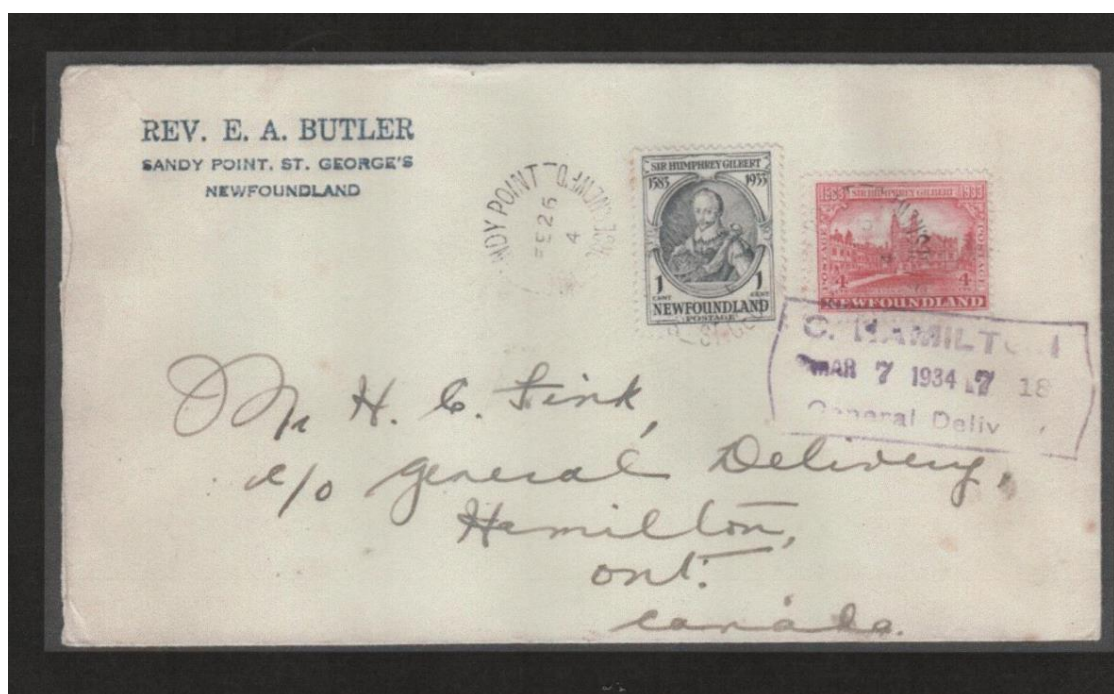 REV. E. A. BUTLER
SANDY POINT, ST. GEORGE'S
NEWFOUNDLAND
NDY POINT
NEWF'D
FE 26
4
SIR HUMPHREY GILBERT
1583 1933
1 CENT 1 CENT
NEWFOUNDLAND
POSTAGE
1583 SIR HUMPHREY GILBERT 1933
POSTAGE POSTAGE
4 4
NEWFOUNDLAND
C. HAMILTON
MAR 7 1934 17 18
General Deliv
Mr H. C. Fink,
c/o General Delivery,
Hamilton,
Ont.
Canada.